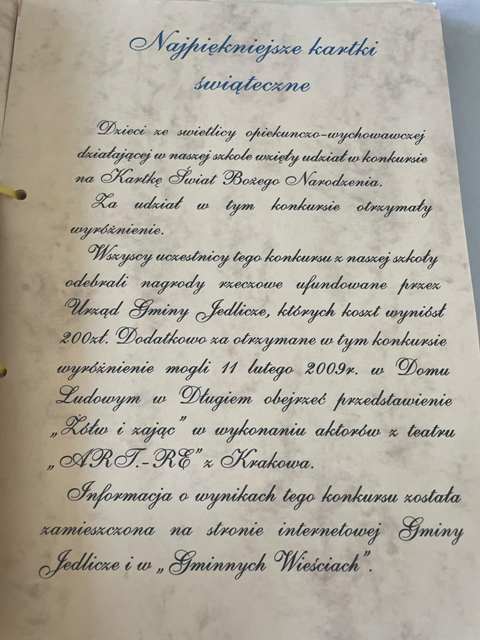 Najpiękniejsze kartki
świąteczne
Dzieci ze swietlicy opiekunczo-wychowawczej
działającej w naszej szkole wzięły udział w konkursie
na Kartkę Świat Bożego Narodzenia.
Za udział w tym konkursie otrzymały
wyróżnienie.
Wszyscy uczestnicy tego konkursu z naszej szkoły
odebrali nagrody rzeczowe ufundowane przez
Urząd Gminy Jedlicze, których koszt wyniósł
200zł. Dodatkowo za otrzymane w tym konkursie
wyróżnienie mogli 11 lutego 2009r. w Domu
Ludowym w Długiem obejrzeć przedstawienie
„Żółw i zając" w wykonaniu aktorów z teatru
„ART.-RE" z Krakowa.
Informacja o wynikach tego konkursu została
zamieszczona na stronie internetowej Gminy
Jedlicze i w „Gminnych Wieściach".